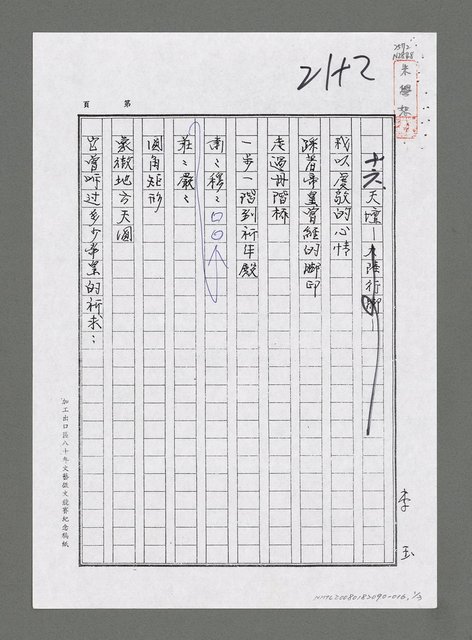 21+2
朱學恕
第 頁
十六 天壇—大陸行腳—
李 玉
我以虔敬的心情
踩著帝皇曾經的脚印
走過丹階橋
一步一階到祈年殿
肅〻穆〻
莊〻嚴〻
圓角矩形
象徵地方天圓
过多少帝皇的祈求:
加工出口區八十年文藝徵文競賽紀念稿紙
NMTL20080182090-016, 1/3